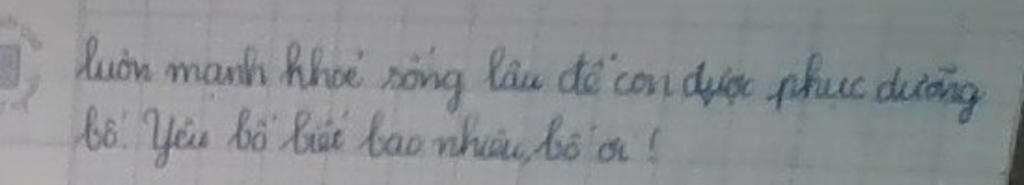 luôn mạnh khoẻ sống lâu để con được phục dưỡng
bố. Yêu bố biết bao nhiêu, bố ơi !